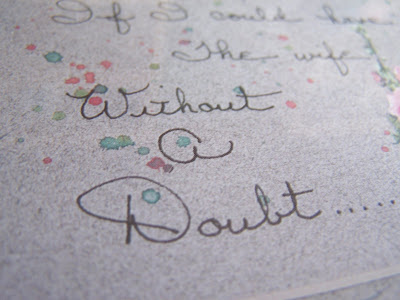 If I could have
The wife
Without
A
Doubt......